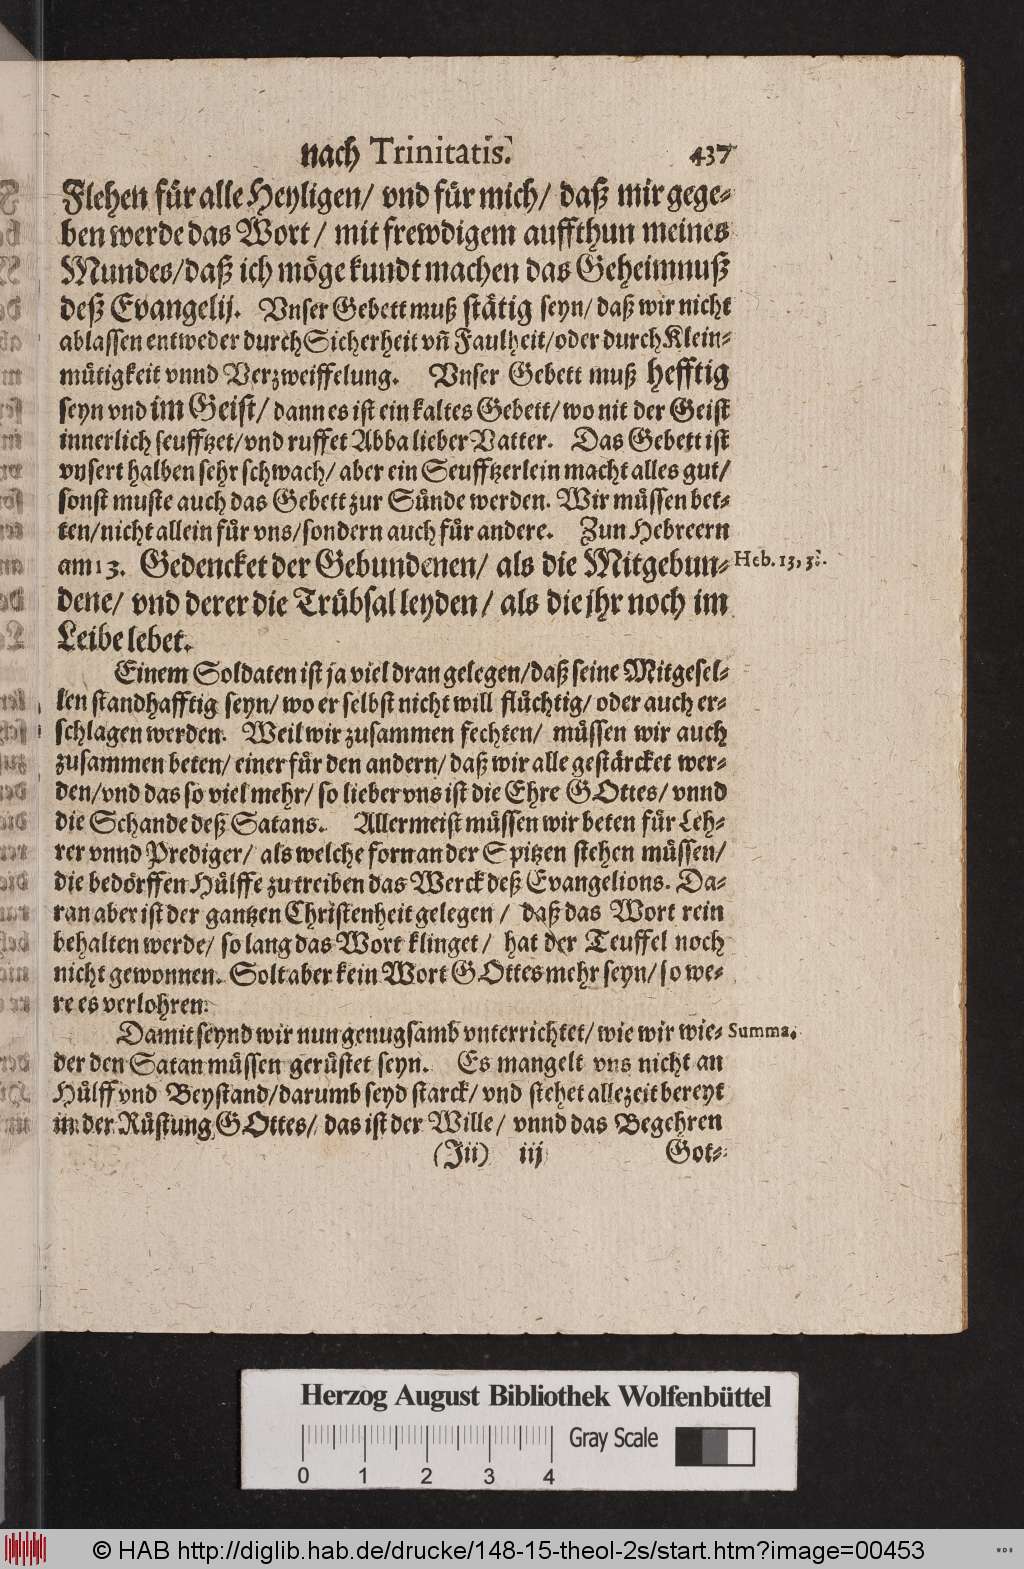 nach Trinitatis. 437
Flehen für alle Heyligen/ vnd für mich/ daß mir gege-
ben werde das Wort/ mit frewdigem auffthun meines
Mundes/ daß ich möge kundt machen das Geheimnuß
deß Evangelij. Vnser Gebett muß stätig seyn/ daß wir nicht
ablassen entweder durch Sicherheit vñ Faulheit/ oder durch Klein-
mütigkeit vnnd Verzweiffelung. Vnser Gebett muß hefftig
seyn vnd im Geist/ dann es ist ein kaltes Gebett/ wo nit der Geist
innerlich seufftzet/ vnd ruffet Abba lieber Vatter. Das Gebett ist
vnsert halben sehr schwach/ aber ein Seufftzerlein macht alles gut/
sonst muste auch das Gebett zur Sünde werden. Wir müssen bet-
ten/ nicht allein für vns/ sondern auch für andere. Zun Hebreern
am 13. Gedencket der Gebundenen/ als die Mitgebun- Heb. 13, 3.
dene/ vnd derer die Trübsal leyden/ als die jhr noch im
Leibe lebet.
Einem Soldaten ist ja viel dran gelegen/ daß seine Mitgesel-
len standhafftig seyn/ wo er selbst nicht will flüchtig/ oder auch er-
schlagen werden. Weil wir zusammen fechten/ müssen wir auch
zusammen beten/ einer für den andern/ daß wir alle gestärcket wer-
den/ vnd das so viel mehr/ so lieber vns ist die Ehre GOttes/ vnnd
die Schande deß Satans. Allermeist müssen wir beten für Leh-
rer vnnd Prediger/ als welche forn an der Spitzen stehen müssen/
die bedörffen Hülffe zu treiben das Werck deß Evangelions. Da-
ran aber ist der gantzen Christenheit gelegen/ daß das Wort rein
behalten werde/ so lang das Wort klinget/ hat der Teuffel noch
nicht gewonnen. Solt aber kein Wort GOttes mehr seyn/ so we-
re es verlohren.
Damit seynd wir nun genugsamb vnterrichtet/ wie wir wie- Summa.
der den Satan müssen gerüstet seyn. Es mangelt vns nicht an
Hülff vnd Beystand/ darumb seyd starck/ vnd stehet allezeit bereyt
in der Rüstung GOttes/ das ist der Wille/ vnnd das Begehren
(Jii) iij Got-
Herzog August Bibliothek Wolfenbüttel
0 1 2 3 4 Gray Scale
© HAB http://diglib.hab.de/drucke/148-15-theol-2s/start.htm?image=00453